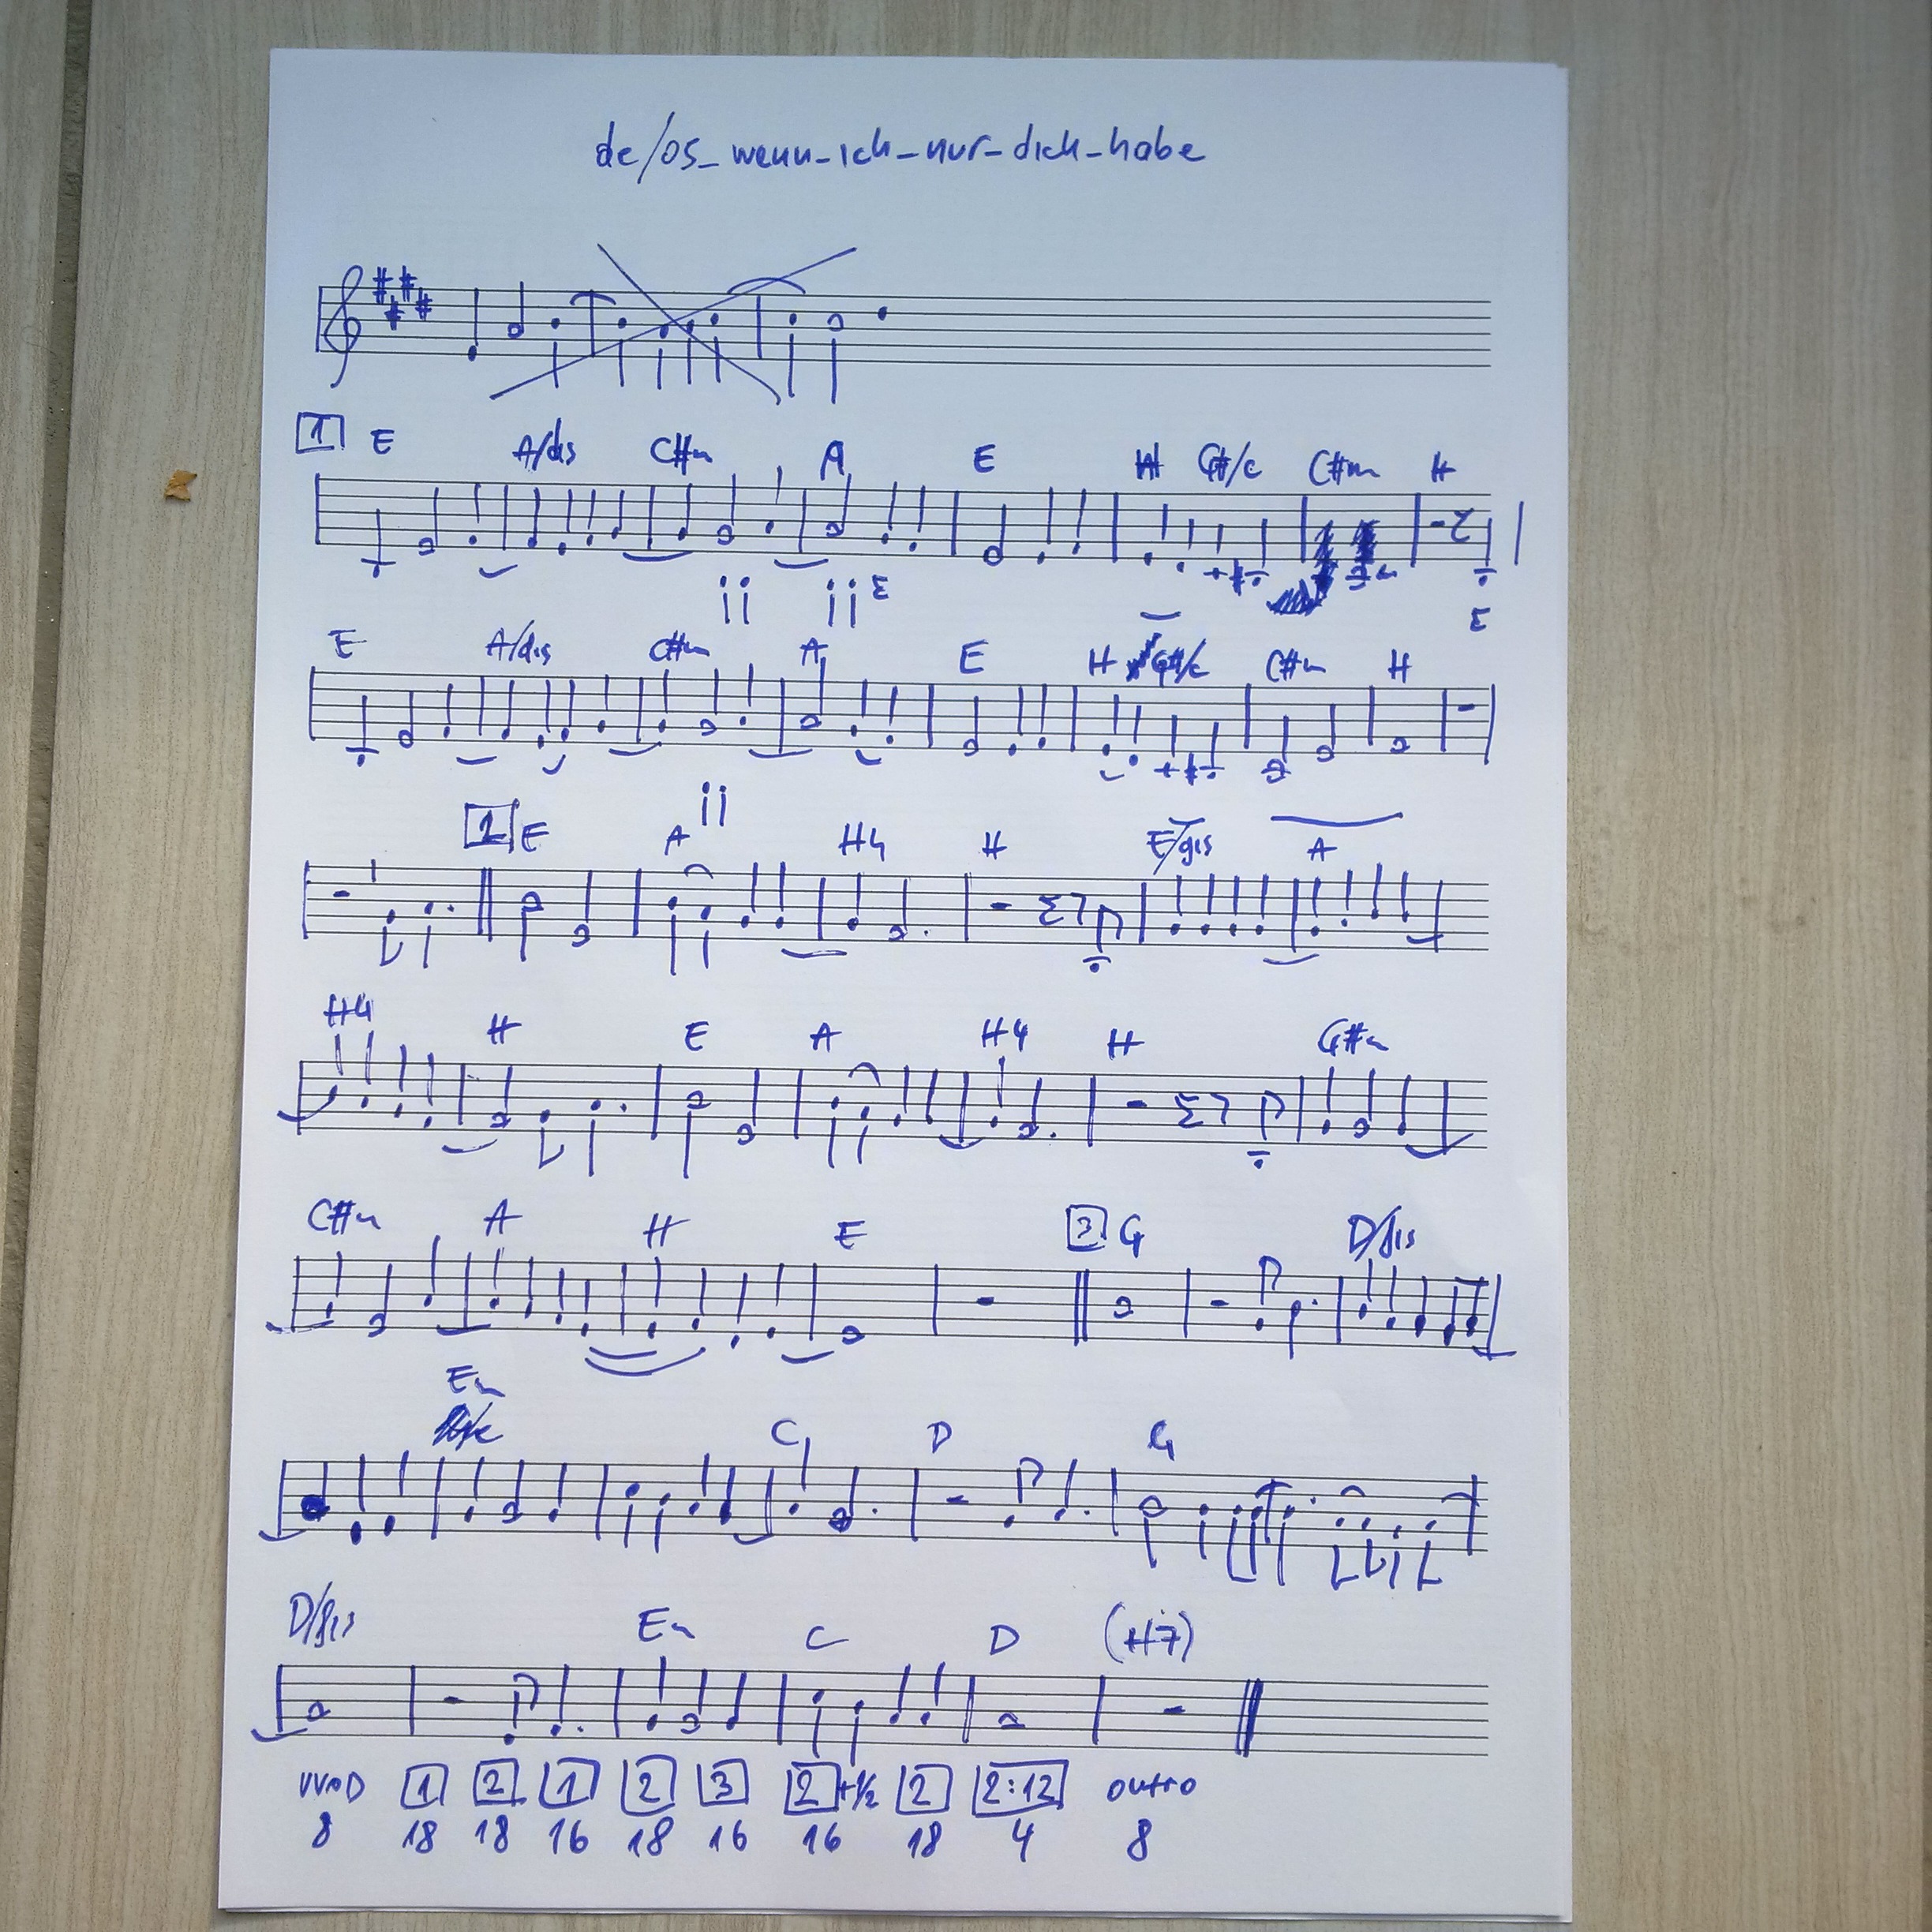 de/os_wenn-ich-nur-dich-habe
1 E A/dis C#m A E H G#/c C#m H
E
E
E A/dis C#m A E H G#/c C#m H
E A H4 H E/gis A
H4 H E A H4 H G#m
C#m A H E 3 G D/fis
Em
C D G
D/fis Em C D (H7)
1 2 1 2 3 2+1/2 2 2:12 outro
8 18 18 16 18 16 16 18 4 8